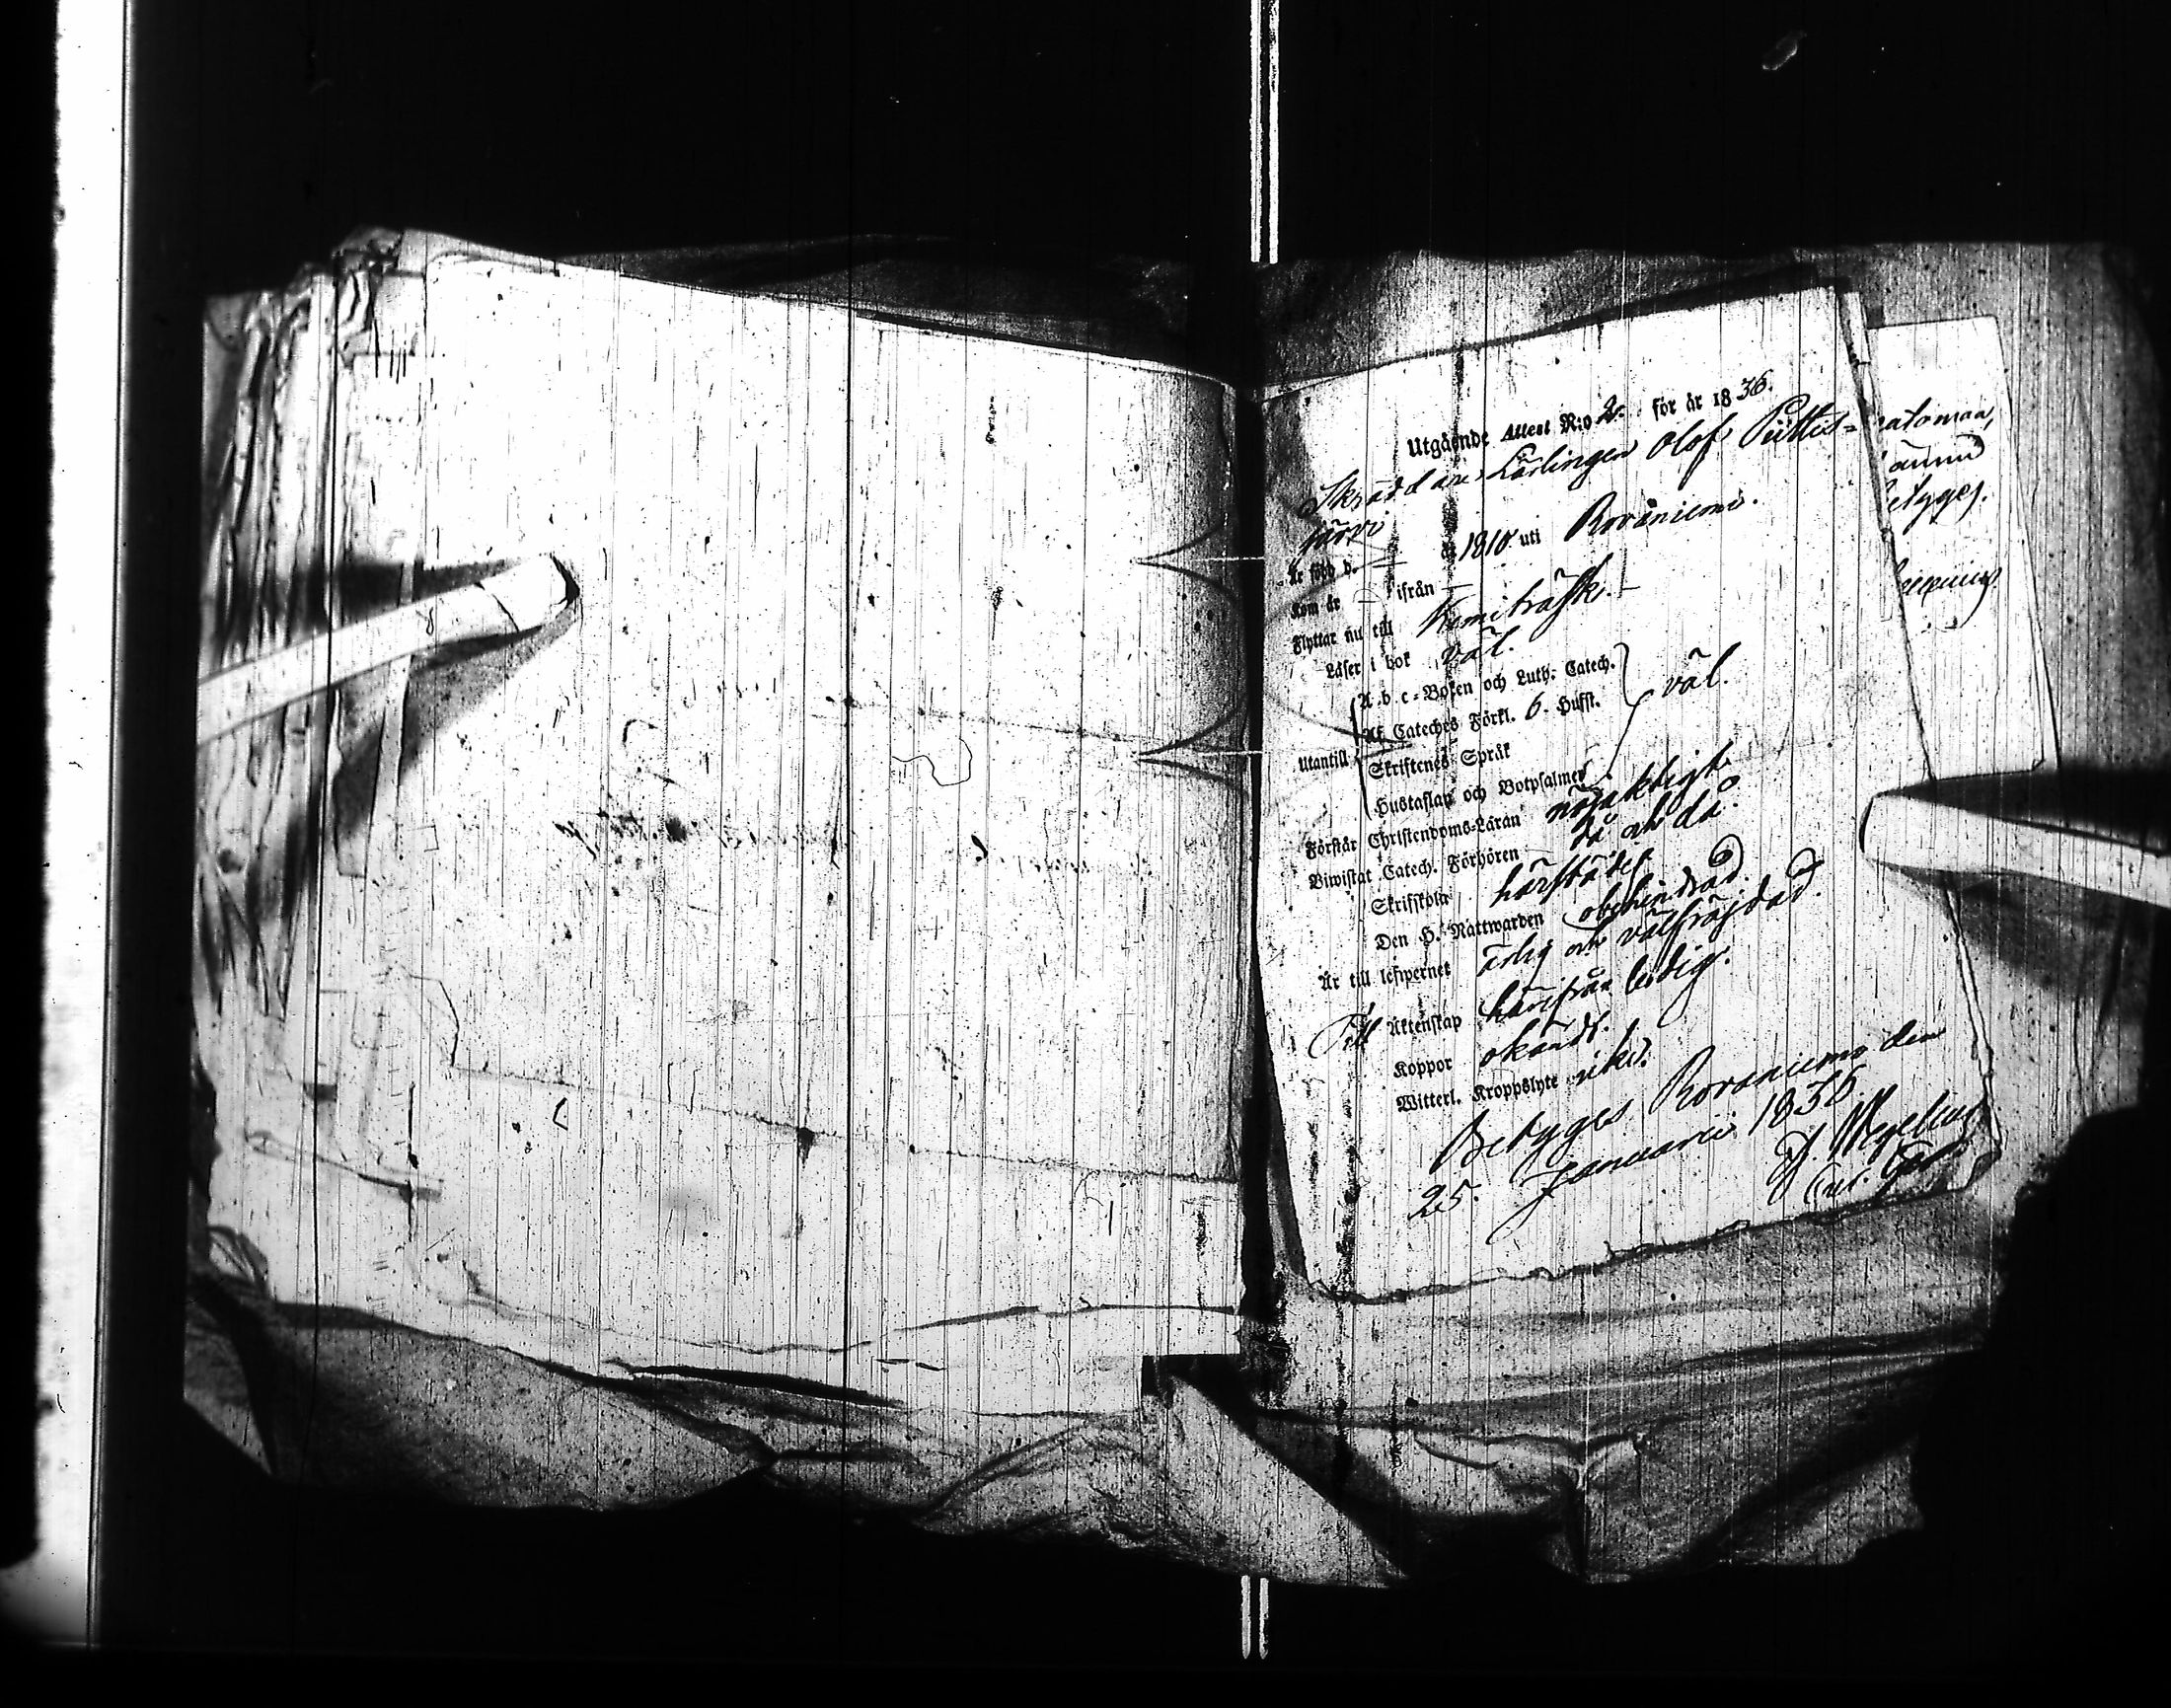 Utgående Attest N:o 2. för år 1836.
Skräddare Lärlingen Olof Piittis=
järvi
Är född d. — år 1810 uti Rovaniemi.
Kom år — ifrån —
Flyttar nu till Kemiträsk. —
Läser i bok väl.
A. b. c=Boken och Luth: Catech.
Af Cateches Förkl. 6. Hufst.
väl.
Utantill
Skriftenes Språk
Hustaflan och Botpsalmer
Förstår Christendoms=Läran nöjaktigt.
Biwistat Catech. Förhören då och då.
Skriftskola härstädes
Den H. Nattwarden obehindrad.
Är till lefwernet ärlig och välfräjdad.
Till Äktenskap härifrån ledig.
Koppor okändt.
Witterl. Kroppslyte icke.
Betyges Rovaniemi den
25. Januarii 1836.
betyges.